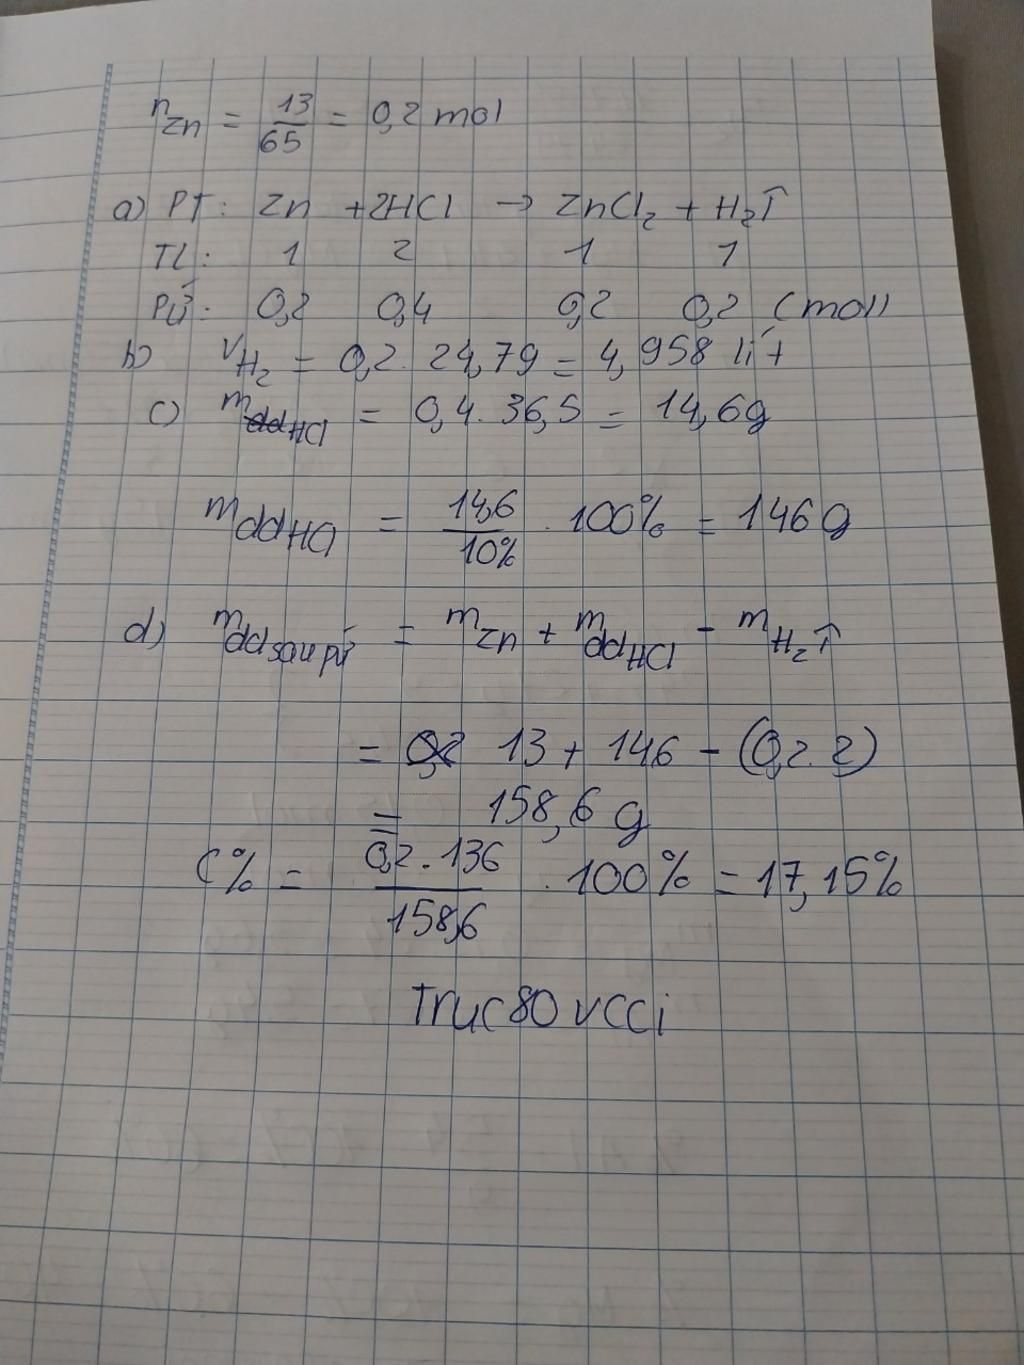 nZn = 13/65 = 0,2 mol
a) PT: Zn + 2HCl → ZnCl₂ + H₂↑
TL: 1 2 1 1
PƯ: 0,2 0,4 0,2 0,2 (mol)
b) VH₂ = 0,2. 24,79 = 4,958 lít
c) mHCl = 0,4. 36,5 = 14,6g
mddHCl = 14,6/10% . 100% = 146g
d) mdd sau pứ = mZn + mddHCl - mH₂↑
= 13 + 146 - (0,2. 2)
= 158,6 g
C% = 0,2.136/158,6 . 100% = 17,15%
Truc80vcci